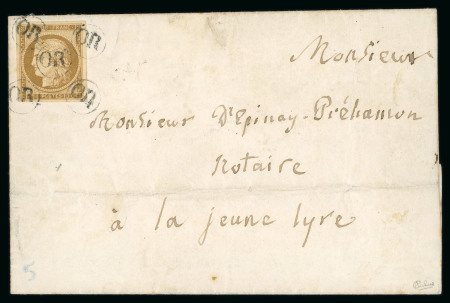 OR OR
OR
OR OR
Monsieur
Monsieur D'Epinay-Préhamon
Notaire
à la jeune lyre
5